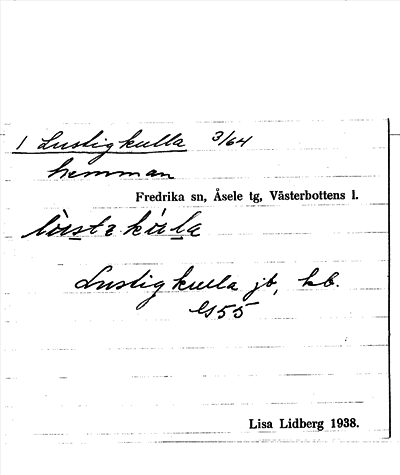 1 Lustigkulla 3/64
hemman
Fredrika sn, Åsele tg, Västerbottens l.
Lustigkulla jb, kb.
GS55
Lisa Lidberg 1938.